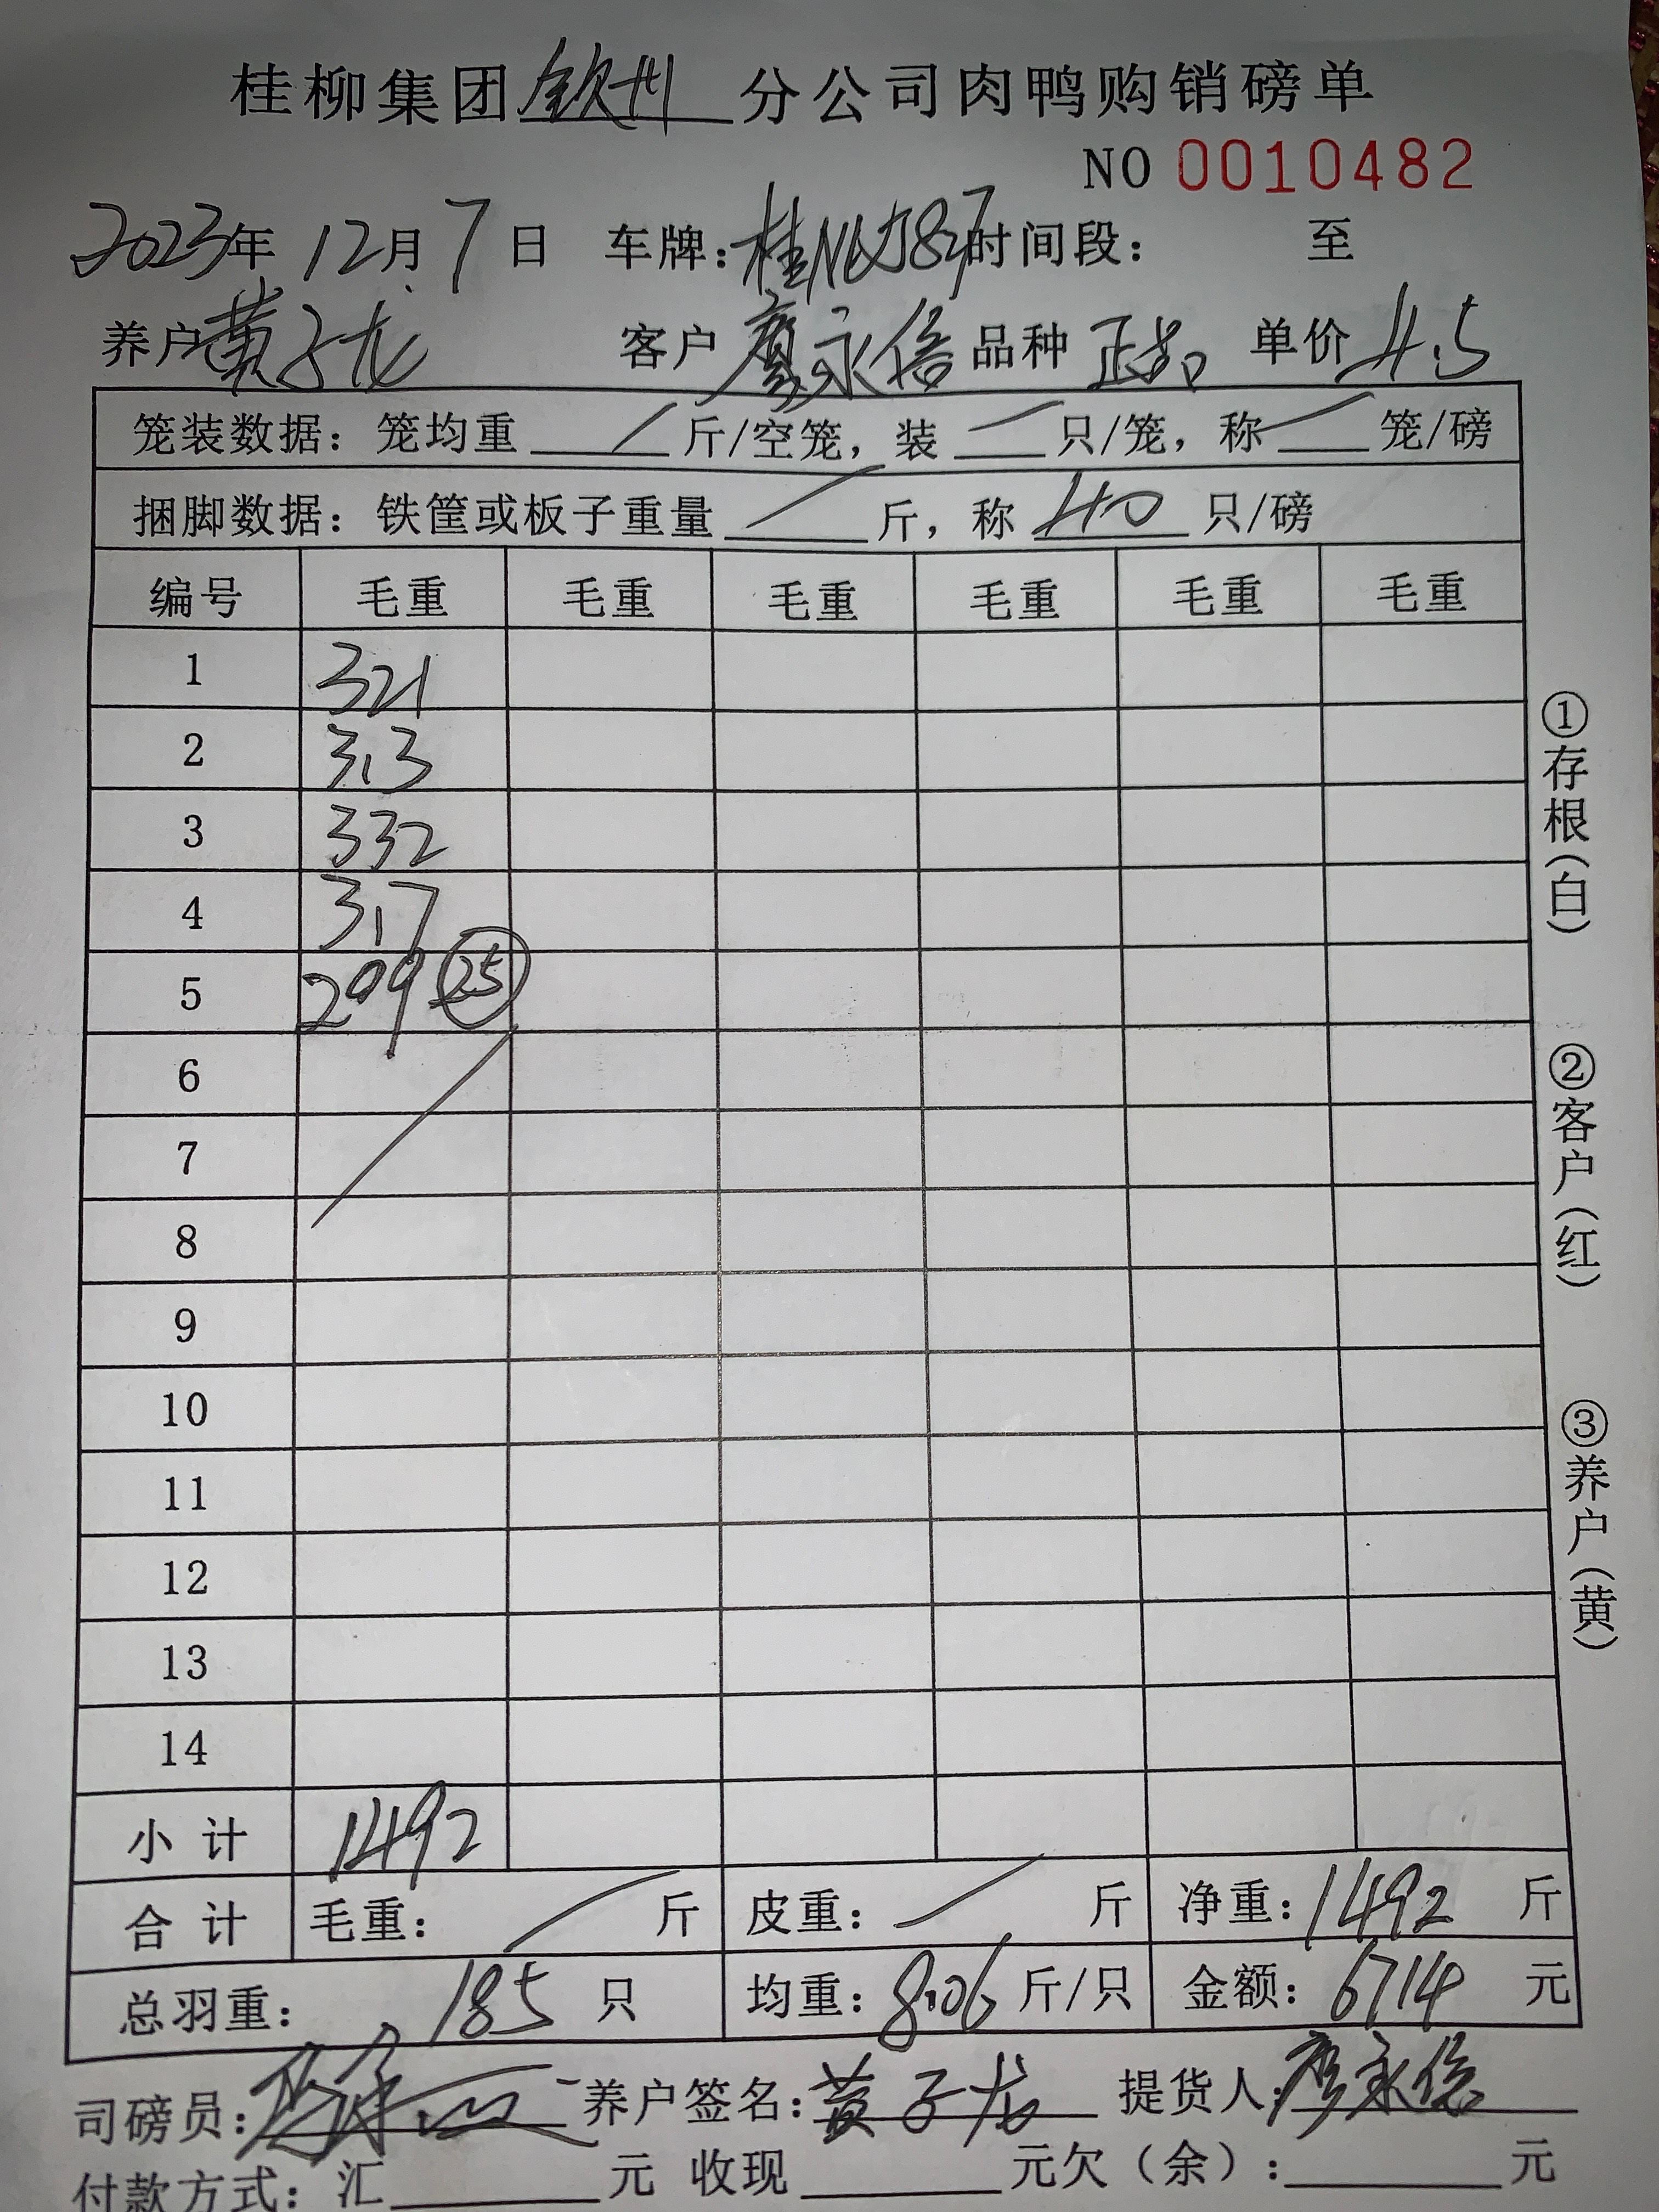 桂柳集团钦州分公司肉鸭购销磅单
NO 0010482
2023年 12月 7日 车牌: 时间段: 至
养户 黄子龙 客户 廖永倍 品种 单价 4.5
笼装数据: 笼均重 / 斤/空笼, 装 / 只/笼, 称 / 笼/磅
捆脚数据: 铁筐或板子重量 / 斤, 称 40 只/磅
编号 毛重 毛重 毛重 毛重 毛重 毛重
1 321
2 313
3 332
4 317
5 209 25
6
7
8
9
10
11
12
13
14
小计 1492
合计 毛重: / 斤 皮重: / 斤 净重: 1492 斤
总羽重: 185 只 均重: 8.06 斤/只 金额: 6714 元
司磅员: 养户签名: 黄子龙 提货人: 廖永倍
付款方式: 汇 元 收现 元欠(余): 元
①存根(白)
②客户(红)
③养户(黄)